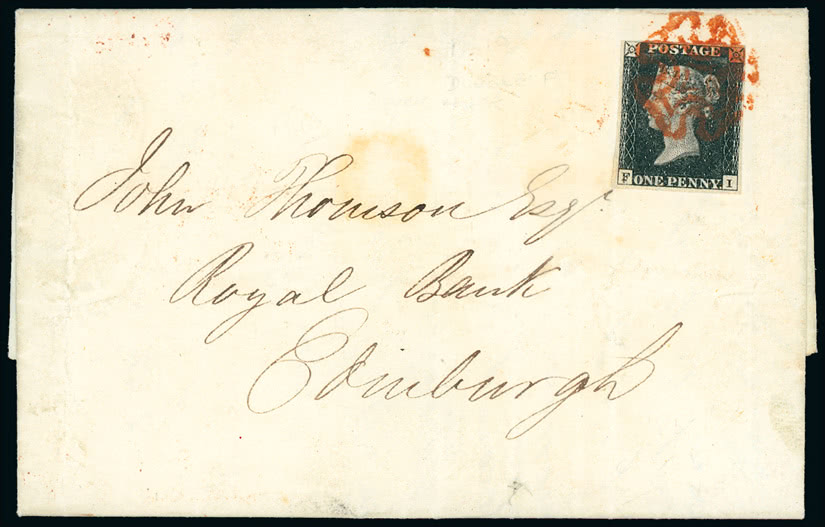 POSTAGE
F ONE PENNY I
John Thomson Esqr
Royal Bank
Edinburgh